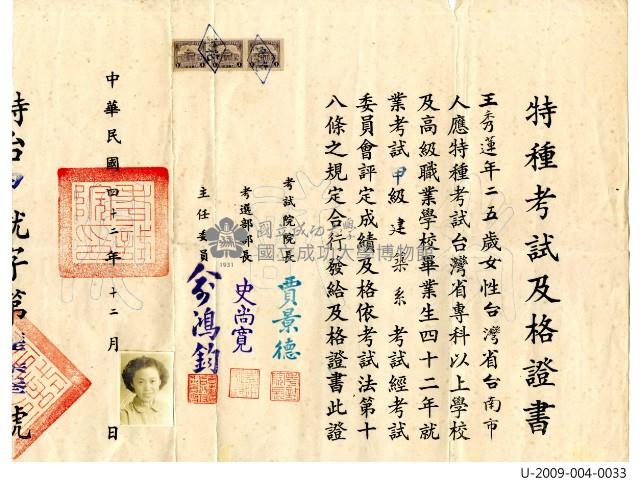 特種考試及格證書
王秀蓮年二五歲女性台灣省台南市
人應特種考試台灣省專科以上學校
及高級職業學校畢業生四十二年就
業考試甲級建築系考試經考試
委員會評定成績及格依考試法第十
八條之規定合行發給及格證書此證
考試院院長 賈景德
考選部部長 史尚寬
主任委員
鴻鈞
中華民國四十二年十二月 日
特台
就字第
號
國立成功大學
國立成功大學博物館
1931
U-2009-004-0033